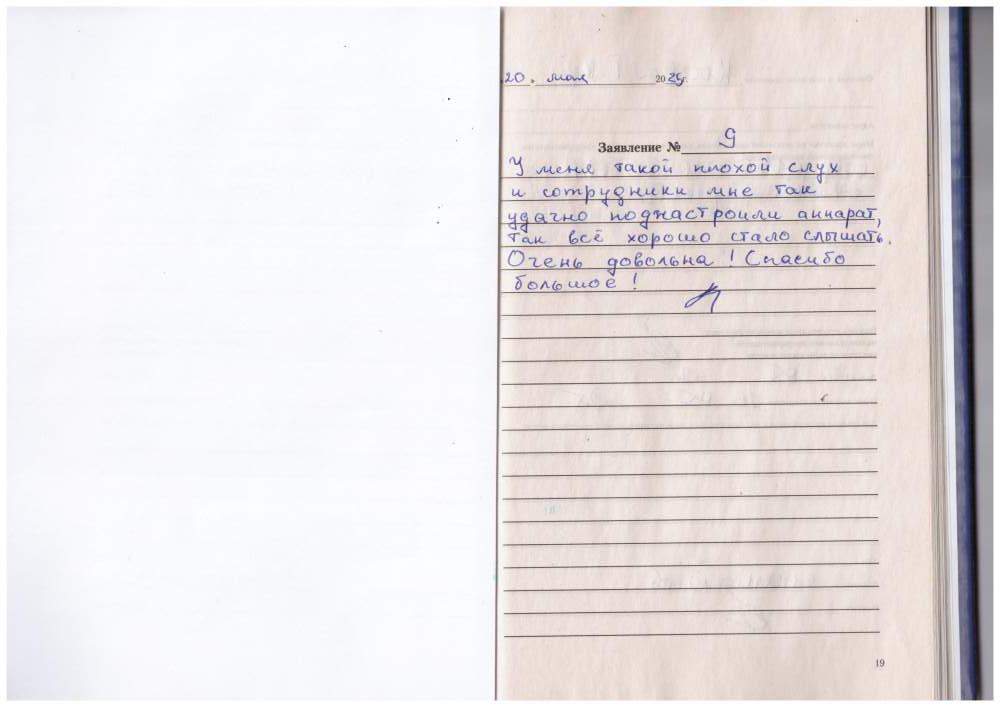 20. мая 2024г.
Заявление № 9
У меня такой плохой слух
и сотрудники мне так
удачно поднастроили аппарат,
так всё хорошо стало слышать.
Очень довольна! Спасибо
большое!
19